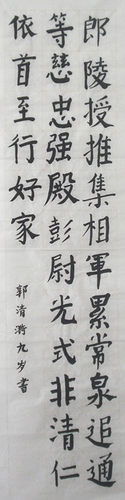 郎陵授推集相軍累常泉追通
等慈忠强殿彭尉光式非清仁
依首至行好家
郭清漪九岁書